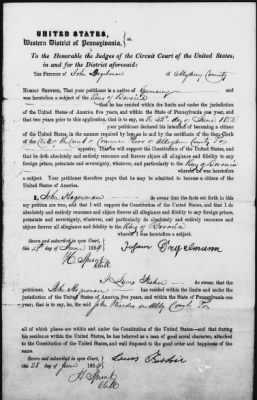 UNITED STATES,
Western District of Pennsylvania, } ss.
To the Honorable the Judges of the Circuit Court of the United States,
in and for the District aforesaid:
The Petition of John Degelman of Allegheny County
Humbly Sheweth, That your petitioner is a native of Germany and
was heretofore a subject of the King of Bavaria
that he has resided within the limits and under the jurisdiction
of the United States of America five years, and within the State of Pennsylvania one year,
and that two years prior to this application, that is to say, on the day of 185
your petitioner declared his intention of becoming a citizen
of the United States, in the manner required by law to wit by and before the Clerk
of the Common Pleas of Allegheny County Pa
that he will support the Constitution of the United States, and
that he doth absolutely and entirely renounce and abjure all allegiance and fidelity to any foreign
prince, potentate and sovereignty, whatever, and particularly to the King of Bavaria
whereof he was heretofore
a subject. Your petitioner therefore prays that he may be admitted to become a citizen of the
United States of America.
I, John do swear that the facts set forth in this
my petition are true, and that I will support the Constitution of the United States, and that I do
absolutely and entirely renounce and abjure forever all allegiance and fidelity to any foreign prince,
potentate, and sovereignty, whatever, and particularly do absolutely and entirely renounce and
abjure forever all allegiance and fidelity to the King of Bavaria
whereof I was heretofore a subject.
Sworn and subscribed in open Court, this
28 day of June 185
Degelmann
H Sproul
Clk
I, Louis being sworn, do say, that the
petitioner, has resided within the limits and under the
jurisdiction of the United States of America, five years, and within the State of Pennsylvania one
year, that is to say, he, the said John resides in Alleg County Pa
all of which places are within and under the Constitution of the United States—and that during
his residence within the United States, he has behaved as a man of good moral character, attached
to the Constitution of the United States, and well disposed to the good order and happiness of the
same.
Sworn and subscribed in open Court, this
28 day of June 185
Louis
H Sproul
Clk